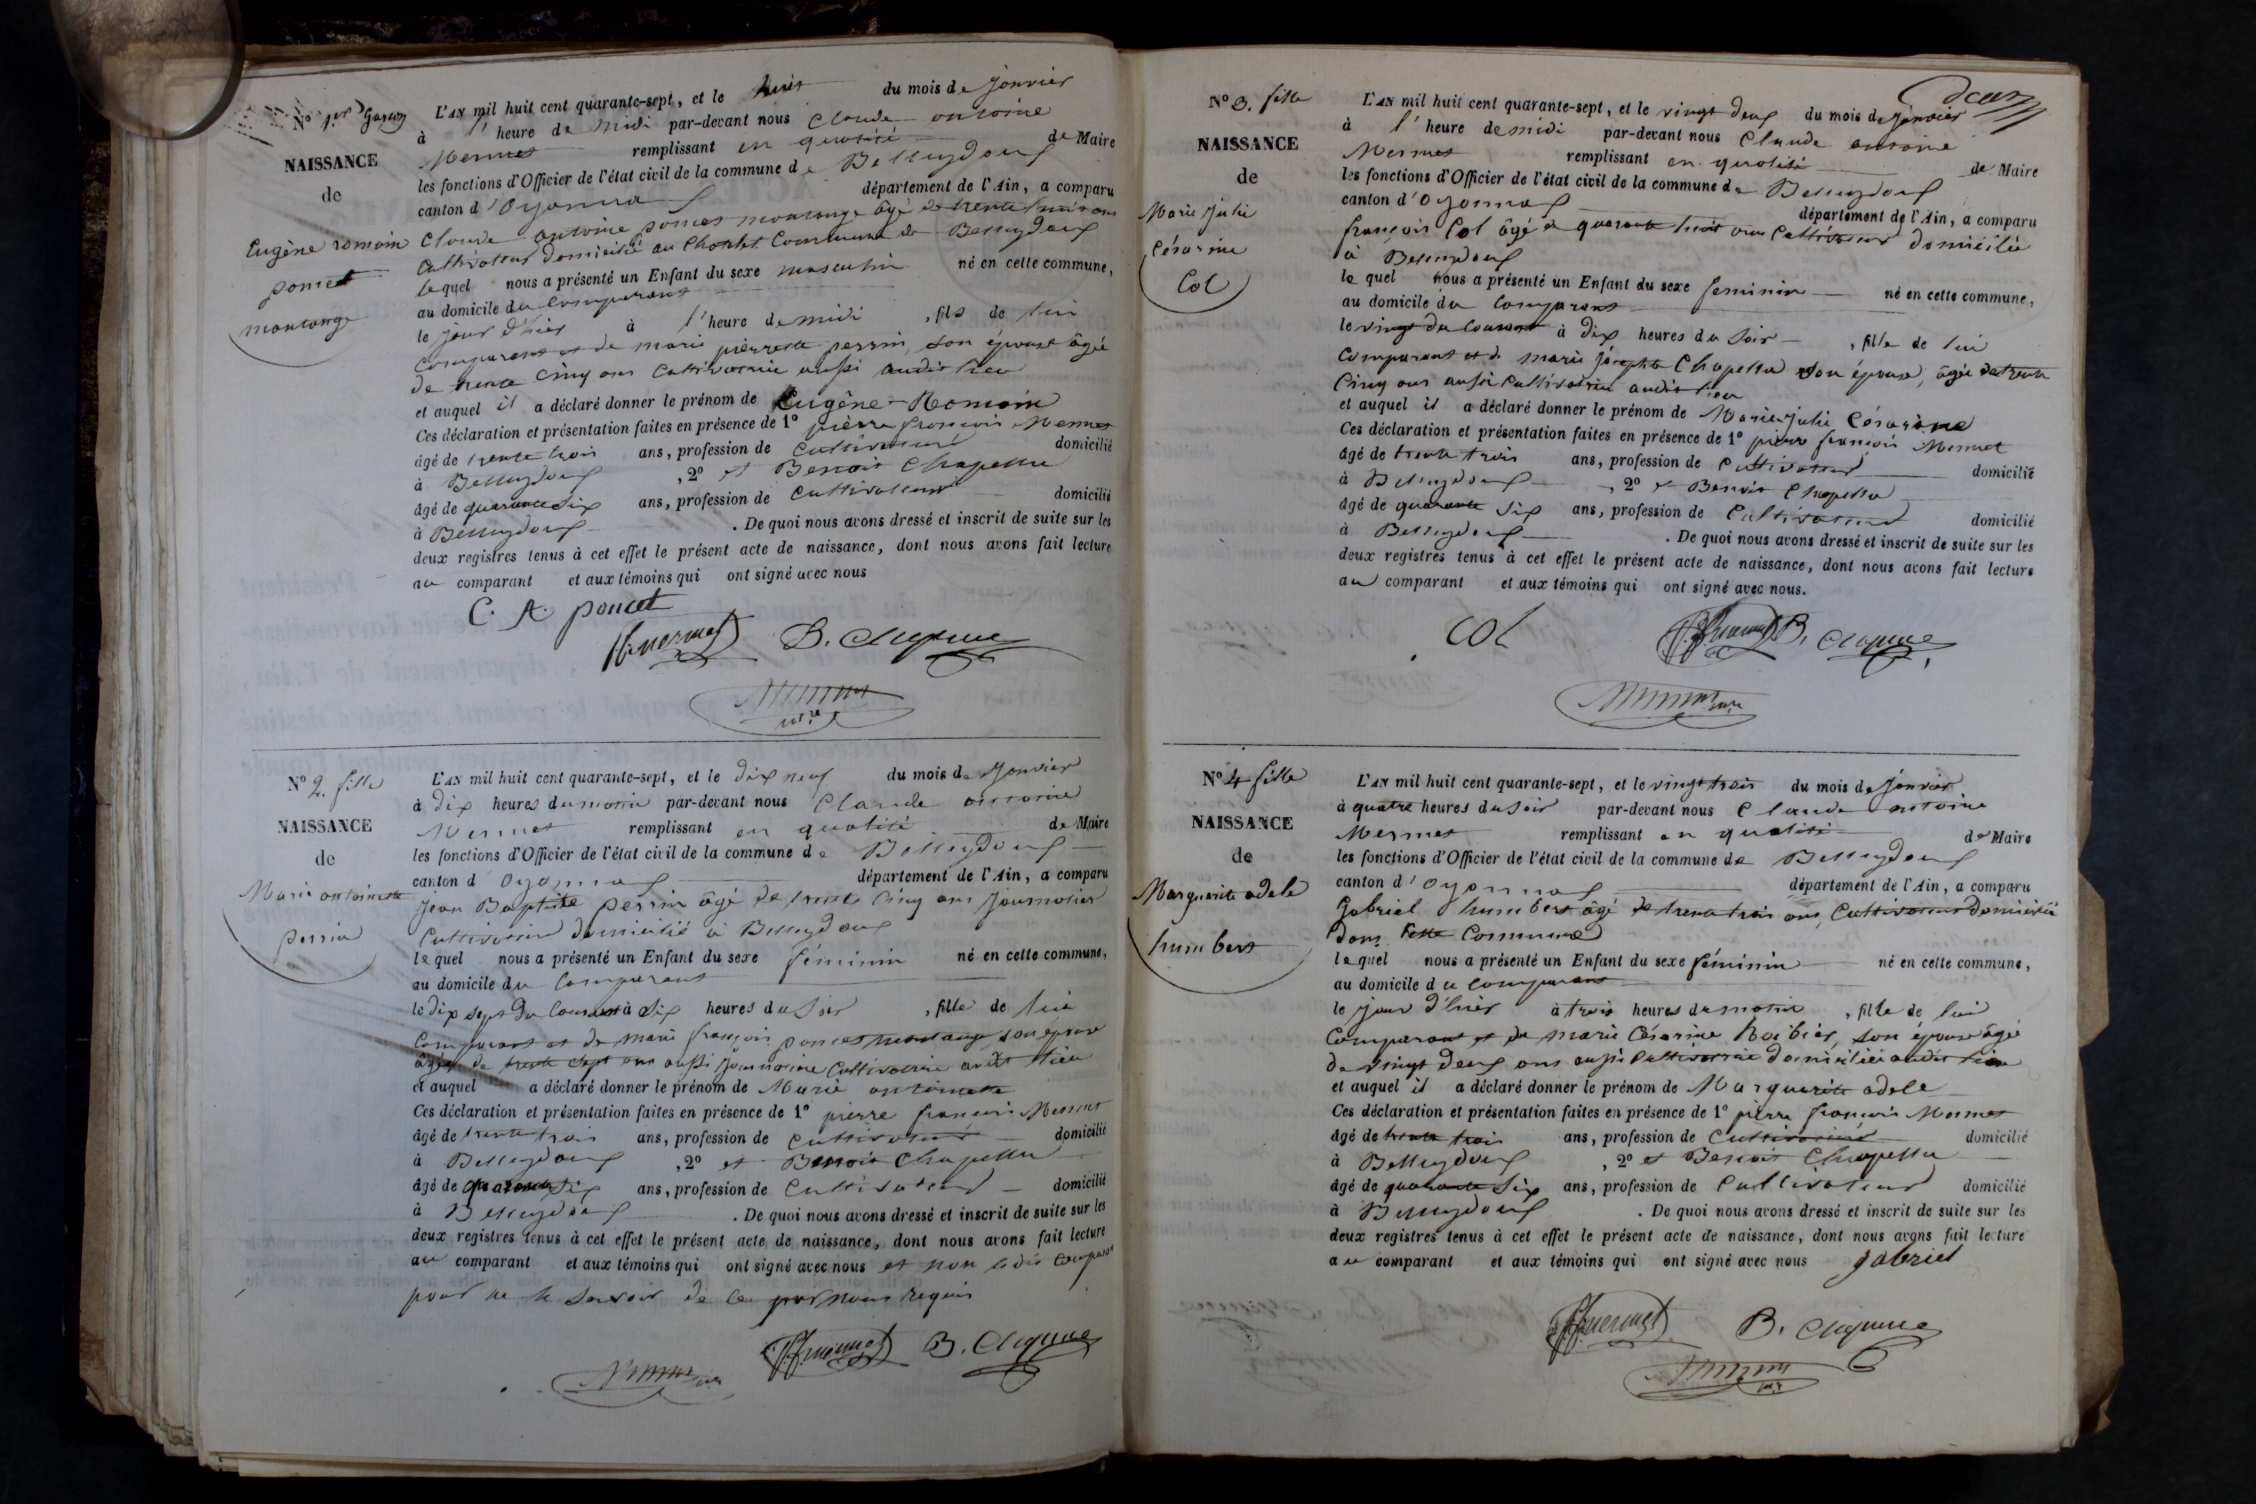 N° 1er Garçon
NAISSANCE
de
Eugène romain
poncet
montange
L'AN mil huit cent quarante-sept, et le huit du mois de Janvier
à l'heure de midi par-devant nous Claude antoine
Mermet remplissant en qualité de Maire
les fonctions d'Officier de l'état civil de la commune de Belleydoux
canton d'Oyonnax département de l'Ain, a comparu
Claude antoine poncet montange âgé de trente huit ans
Cultivateur domicilié au Chatelet Commune de Belleydoux
lequel nous a présenté un Enfant du sexe masculin né en cette commune,
au domicile du Comparant
le jour d'hier à l'heure de midi, fils de lui
Comparant et de marie pierrette perrin, son épouse âgée
de trente cinq ans Cultivatrice aussi audit lieu
et auquel il a déclaré donner le prénom de Eugène-Romain
Ces déclaration et présentation faites en présence de 1° pierre françois Mermet
âgé de trente trois ans, profession de Cultivateur domicilié
à Belleydoux, 2° et Benoit Chapellu
âgé de quarante six ans, profession de Cultivateur domicilié
à Belleydoux. De quoi nous avons dressé et inscrit de suite sur les
deux registres tenus à cet effet le présent acte de naissance, dont nous avons fait lecture
au comparant et aux témoins qui ont signé avec nous
C. A. poncet
mermet B. Chapellu
N° 2. fille
NAISSANCE
de
Marie antoinette
perrin
L'AN mil huit cent quarante-sept, et le dix neuf du mois de Janvier
à dix heures du matin par-devant nous Claude antoine
Mermet remplissant en qualité de Maire
les fonctions d'Officier de l'état civil de la commune de Belleydoux
canton d'Oyonnax département de l'Ain, a comparu
Jean Baptiste perrin âgé de trente Cinq ans Journalier
Cultivateur domicilié à Belleydoux
lequel nous a présenté un Enfant du sexe féminin né en cette commune,
au domicile du Comparant
le dix sept du Courant à six heures du Soir, fille de lui
Comparant et de marie françois poncet montange son épouse
âgée de trente sept ans aussi Journalière Cultivatrice audit lieu
et auquel a déclaré donner le prénom de Marie antoinette
Ces déclaration et présentation faites en présence de 1° pierre françois Mermet
âgé de trente trois ans, profession de Cultivateur domicilié
à Belleydoux, 2° et Benoit Chapellu
âgé de quarante six ans, profession de Cultivateur domicilié
à Belleydoux. De quoi nous avons dressé et inscrit de suite sur les
deux registres tenus à cet effet le présent acte de naissance, dont nous avons fait lecture
au comparant et aux témoins qui ont signé avec nous et non ledit Comparant
pour ne le Savoir de ce par nous requis
mermet B. Chapellu
N° 3. fille
NAISSANCE
de
Marie Julie
Césarine
Col
L'AN mil huit cent quarante-sept, et le vingt deux du mois de Janvier
à l'heure de midi par-devant nous Claude antoine
Mermet remplissant en qualité de Maire
les fonctions d'Officier de l'état civil de la commune de Belleydoux
canton d'Oyonnax département de l'Ain, a comparu
françois Col âgé de quarante huit ans Cultivateur domicilié
à Belleydoux
lequel nous a présenté un Enfant du sexe feminin né en cette commune,
au domicile du Comparant
le vingt du Courant à dix heures du Soir, fille de lui
Comparant et de marie Josephte Chapellu son épouse, âgée de trente
Cinq ans aussi Cultivatrice audit lieu
et auquel il a déclaré donner le prénom de Marie Julie Césarine
Ces déclaration et présentation faites en présence de 1° pierre françois Mermet
âgé de trente trois ans, profession de Cultivateur domicilié
à Belleydoux, 2° et Benoit Chapellu
âgé de quarante six ans, profession de Cultivateur domicilié
à Belleydoux. De quoi nous avons dressé et inscrit de suite sur les
deux registres tenus à cet effet le présent acte de naissance, dont nous avons fait lecture
au comparant et aux témoins qui ont signé avec nous.
Col mermet B. Chapellu
N° 4 fille
NAISSANCE
de
Marguerite adele
humbert
L'AN mil huit cent quarante-sept, et le vingt trois du mois de Janvier
à quatre heures du soir par-devant nous Claude antoine
Mermet remplissant en qualité de Maire
les fonctions d'Officier de l'état civil de la commune de Belleydoux
canton d'Oyonnax département de l'Ain, a comparu
Gabriel humbert âgé de trente trois ans, Cultivateur Domicilié
dans cette Commune
lequel nous a présenté un Enfant du sexe féminin né en cette commune,
au domicile du Comparant
le jour d'hier à trois heures du matin, fille de lui
Comparant et de marie Césarine, son épouse âgée
de vingt deux ans aussi Cultivatrice domiciliée audit lieu
et auquel il a déclaré donner le prénom de Marguerite adele
Ces déclaration et présentation faites en présence de 1° pierre françois Mermet
âgé de trente trois ans, profession de Cultivateur domicilié
à Belleydoux, 2° et Benoit Chapellu
âgé de quarante six ans, profession de Cultivateur domicilié
à Belleydoux. De quoi nous avons dressé et inscrit de suite sur les
deux registres tenus à cet effet le présent acte de naissance, dont nous avons fait lecture
au comparant et aux témoins qui ont signé avec nous gabriel
mermet B. Chapellu